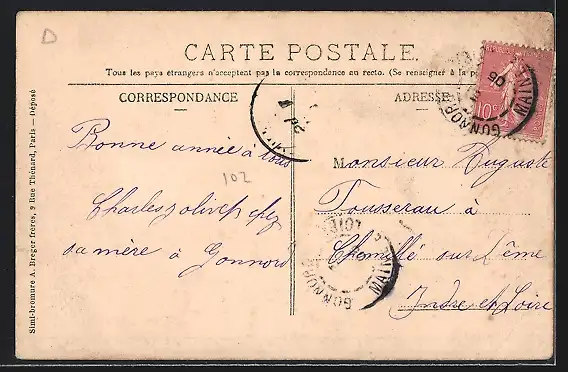 D
CARTE POSTALE.
Tous les pays étrangers n'acceptent pas la correspondance au recto. (Se renseigner à la
CORRESPONDANCE
ADRESSE
10c
GONNORD
MAINE
06
Bonne année à tous
102
Charles
chez
sa mère à Gonnord
Monsieur Auguste
Tousserau à
Chemillé sur Dême
Indre et Loire
GONNORD
LOIRE
Simi-bromure A. Breger frères, 9 Rue Thénard, Paris — Déposé